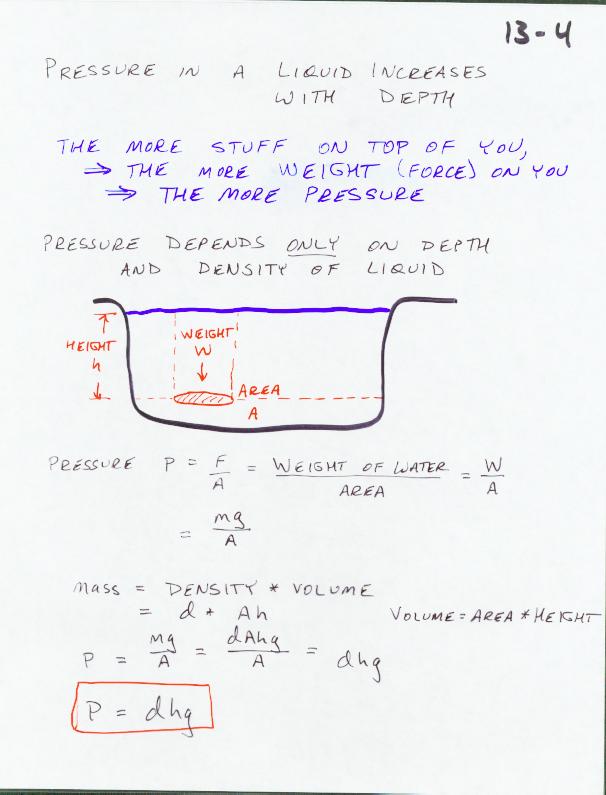 13-4
PRESSURE IN A LIQUID INCREASES
WITH DEPTH
THE MORE STUFF ON TOP OF YOU,
⇒ THE MORE WEIGHT (FORCE) ON YOU
⇒ THE MORE PRESSURE
PRESSURE DEPENDS ONLY ON DEPTH
AND DENSITY OF LIQUID
HEIGHT
h
WEIGHT
W
AREA
A
PRESSURE P = F/A = WEIGHT OF WATER/AREA = W/A
= mg/A
MASS = DENSITY * VOLUME
= d * Ah
VOLUME = AREA * HEIGHT
P = mg/A = dAhg/A = dhg
P = dhg